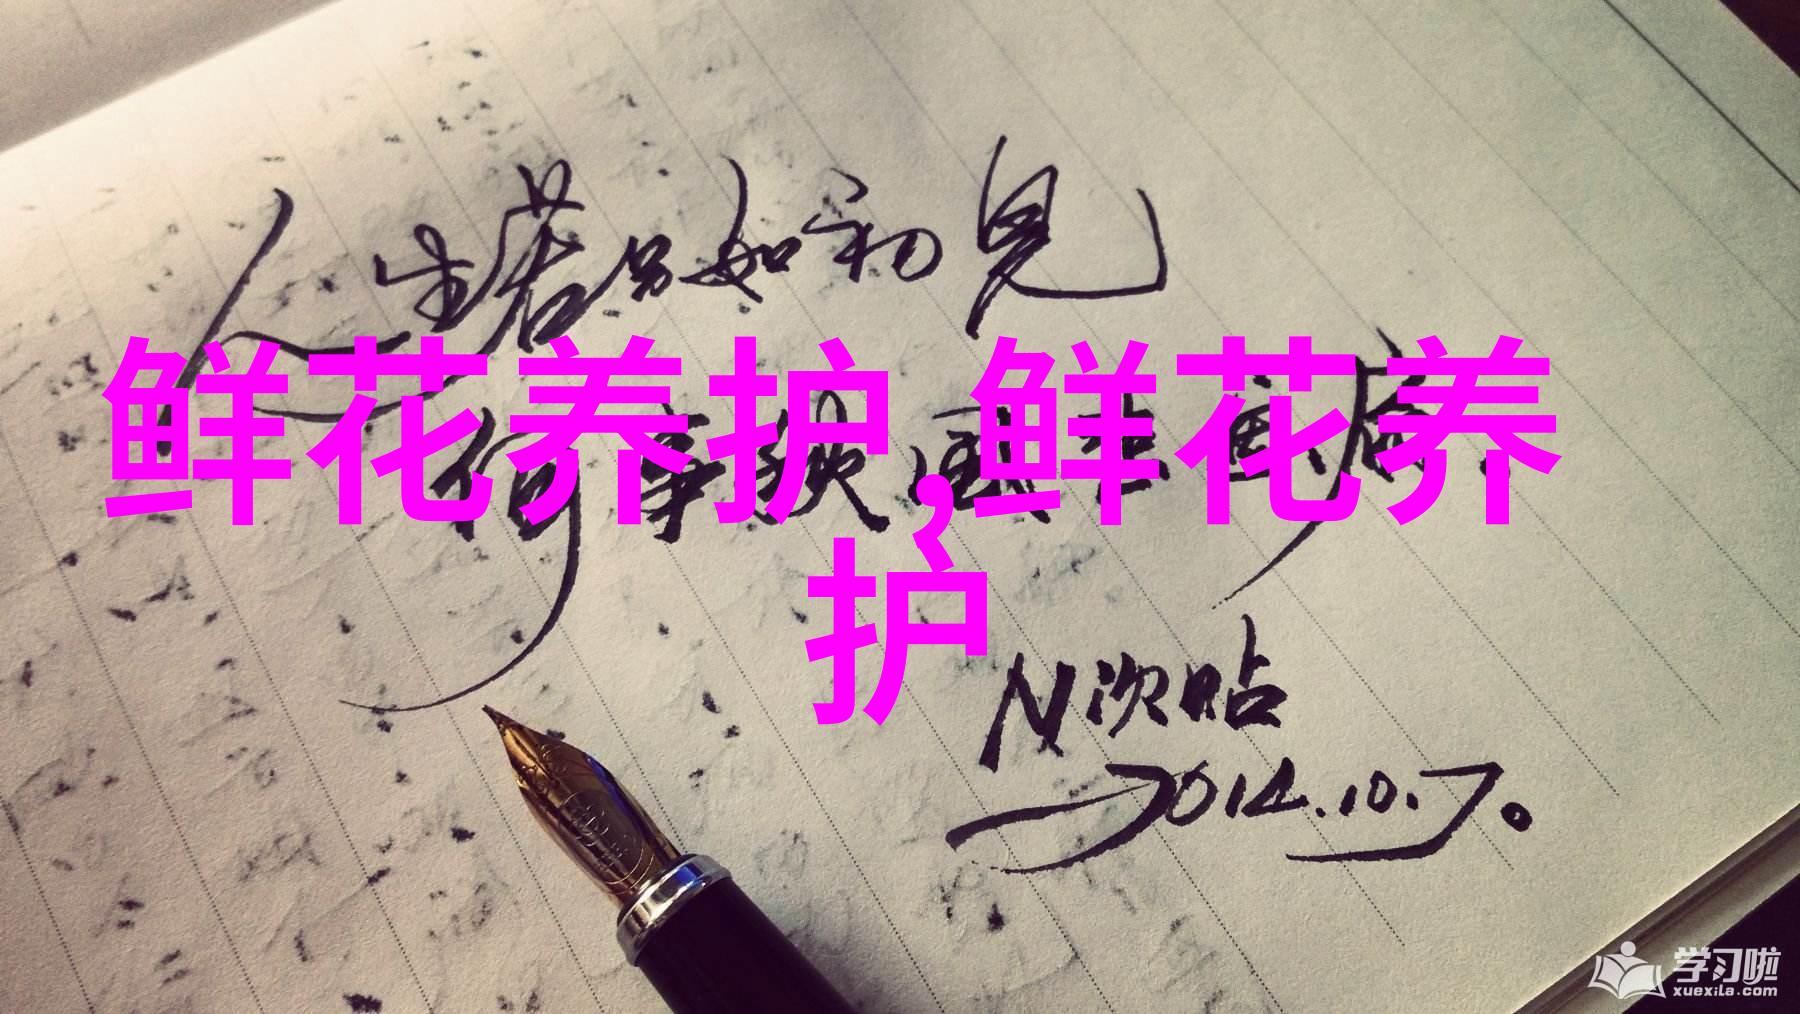 人生若只如初见
鲜花养护,鲜花养
护
何事秋
N次贴
2014.10.7。
学习啦
xuexila.com